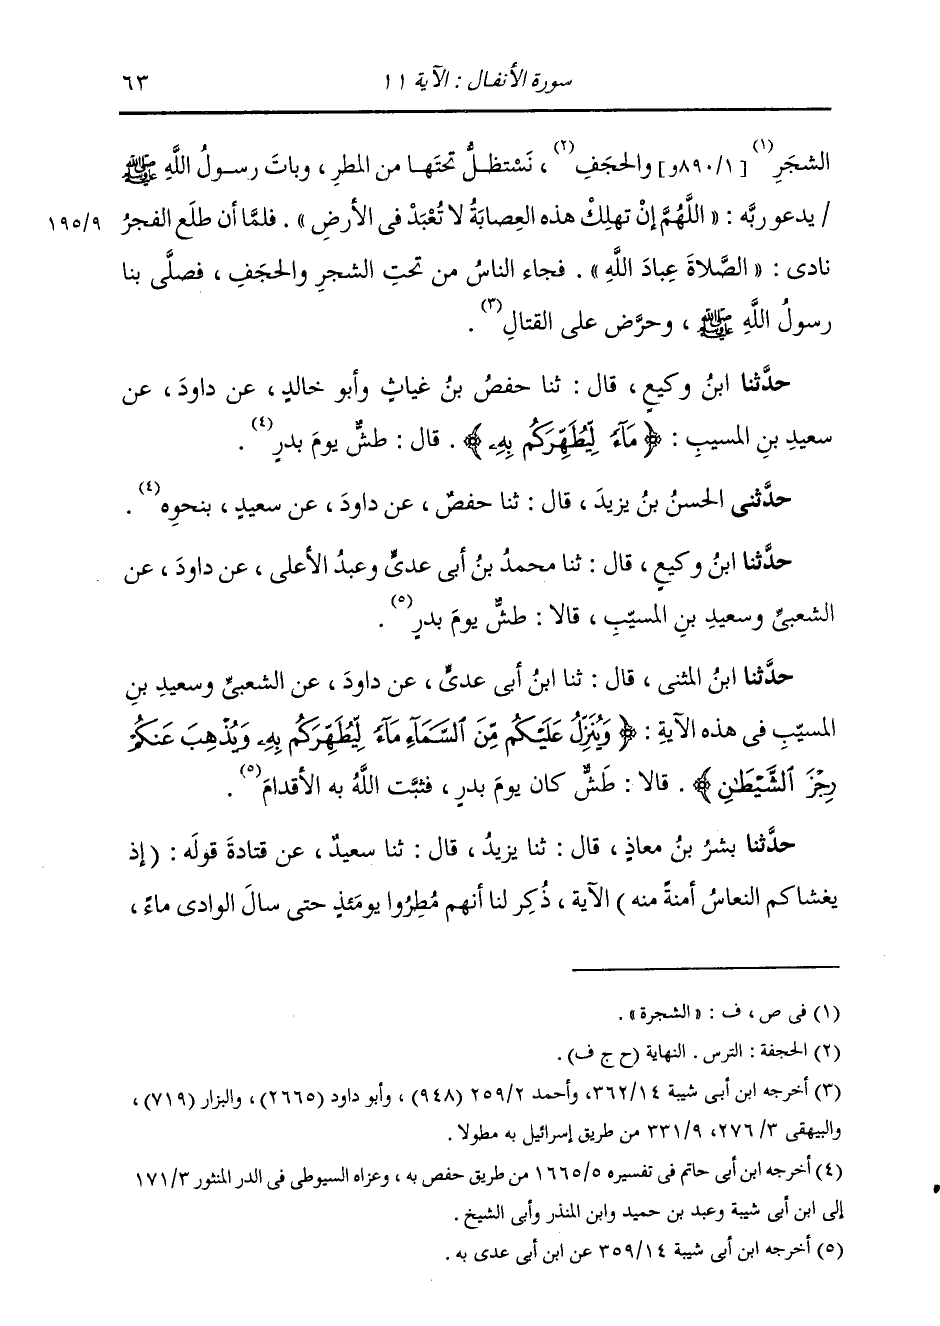 سورة الأنفال : الآية ١١ ٦٣
الشجَرِ(١) [٨٩٠/١و] والحجَفِ(٢) ، نَسْتظلُّ تحتَها من المطرِ ، وباتَ رسولُ اللَّهِ ﷺ
/ يدعو ربَّه : « اللَّهُمَّ إنْ تهلِكْ هذه العِصابَةُ لا تُعْبَدْ فى الأرضِ » . فلمَّا أن طلَع الفجرُ ١٩٥/٩
نادى : « الصَّلاةَ عِبادَ اللَّهِ » . فجاء الناسُ من تحتِ الشجرِ والحجَفِ ، فصلَّى بنا
رسولُ اللَّهِ ﷺ ، وحرَّض على القتالِ(٣) .
حدَّثنا ابنُ وكيعٍ ، قال : ثنا حفصُ بنُ غياثٍ وأبو خالدٍ ، عن داودَ ، عن
سعيدِ بنِ المسيبِ : ﴿ مَآءً لِّيُطَهِّرَكُم بِهِۦ ﴾ . قال : طشٌّ يومَ بدرٍ(٤) .
حدَّثنى الحسنُ بنُ يزيدَ ، قال : ثنا حفصٌ ، عن داودَ ، عن سعيدٍ ، بنحوِه(٤) .
حدَّثنا ابنُ وكيعٍ ، قال : ثنا محمدُ بنُ أبى عدىٍّ وعبدُ الأعلى ، عن داودَ ، عن
الشعبىِّ وسعيدِ بنِ المسيّبِ ، قالا : طشٌّ يومَ بدرٍ(٥) .
حدَّثنا ابنُ المثنى ، قال : ثنا ابنُ أبى عدىٍّ ، عن داودَ ، عن الشعبىِّ وسعيدِ بنِ
المسيّبِ فى هذه الآيةِ : ﴿ وَيُنَزِّلُ عَلَيْكُم مِّنَ ٱلسَّمَآءِ مَآءً لِّيُطَهِّرَكُم بِهِۦ وَيُذْهِبَ عَنكُمْ
رِجْزَ ٱلشَّيْطَٰنِ ﴾ . قالا : طَشٌّ كان يومَ بدرٍ ، فثبَّت اللَّهُ به الأقدامَ(٥) .
حدَّثنا بشرُ بنُ معاذٍ ، قال : ثنا يزيدُ ، قال : ثنا سعيدٌ ، عن قتادةَ قولَه : ( إذ
يغشاكم النعاسُ أمنةً منه ) الآية ، ذُكِر لنا أنهم مُطِرُوا يومَئذٍ حتى سالَ الوادى ماءً ،
(١) فى ص ، ف : « الشجرة » .
(٢) الحجفة : الترس . النهاية (ح ج ف) .
(٣) أخرجه ابن أبى شيبة ٣٦٢/١٤، وأحمد ٢٥٩/٢ (٩٤٨) ، وأبو داود (٢٦٦٥) ، والبزار (٧١٩) ،
والبيهقى ٣/ ٢٧٦، ٣٣١/٩ من طريق إسرائيل به مطولا .
(٤) أخرجه ابن أبى حاتم فى تفسيره ١٦٦٥/٥ من طريق حفص به ، وعزاه السيوطى فى الدر المنثور ١٧١/٣
إلى ابن أبى شيبة وعبد بن حميد وابن المنذر وأبى الشيخ .
(٥) أخرجه ابن أبى شيبة ٣٥٩/١٤ عن ابن أبى عدى به .